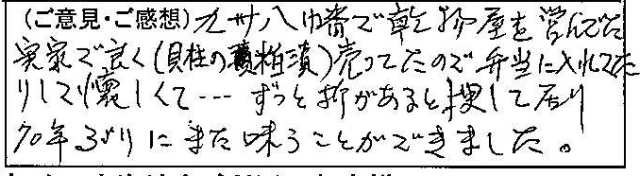 (ご意見・ご感想) 九州八幡で乾物屋を営んでた
実家で良く(貝柱の粕漬)売ってたので弁当に入れてた
りして懐しくて… ずっと折があると捜して居り
70年ぶりにまた味うことができました。